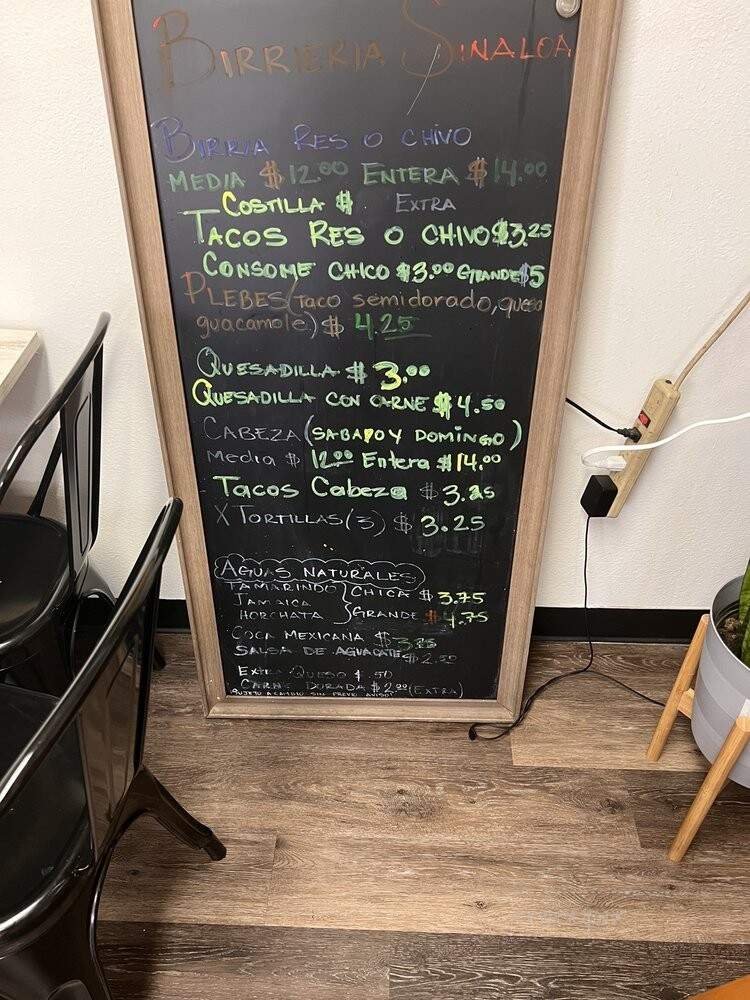 BIRRIERIA SINALOA
BIRRIA RES O CHIVO
MEDIA $12.00 ENTERA $14.00
COSTILLA $ EXTRA
TACOS RES O CHIVO $3.25
CONSOME CHICO $3.00 GRANDE $5
PLEBES (Taco semidorado, queso
guacamole) $ 4.25
QUESADILLA $ 3.00
QUESADILLA CON CARNE $4.50
CABEZA (SABADO Y DOMINGO)
Media $ 12.00 Entera $14.00
Tacos Cabeza $ 3.25
X TORTILLAS (3) $ 3.25
AGUAS NATURALES
TAMARINDO CHICA $ 3.75
JAMAICA
HORCHATA GRANDE $ 4.75
COCA MEXICANA $
SALSA DE AGUACATE $2.50
EXTRA QUESO $.50
CARNE DORADA $2.00 (EXTRA)
*SUJETO A CAMBIO SIN PREVIO AVISO*